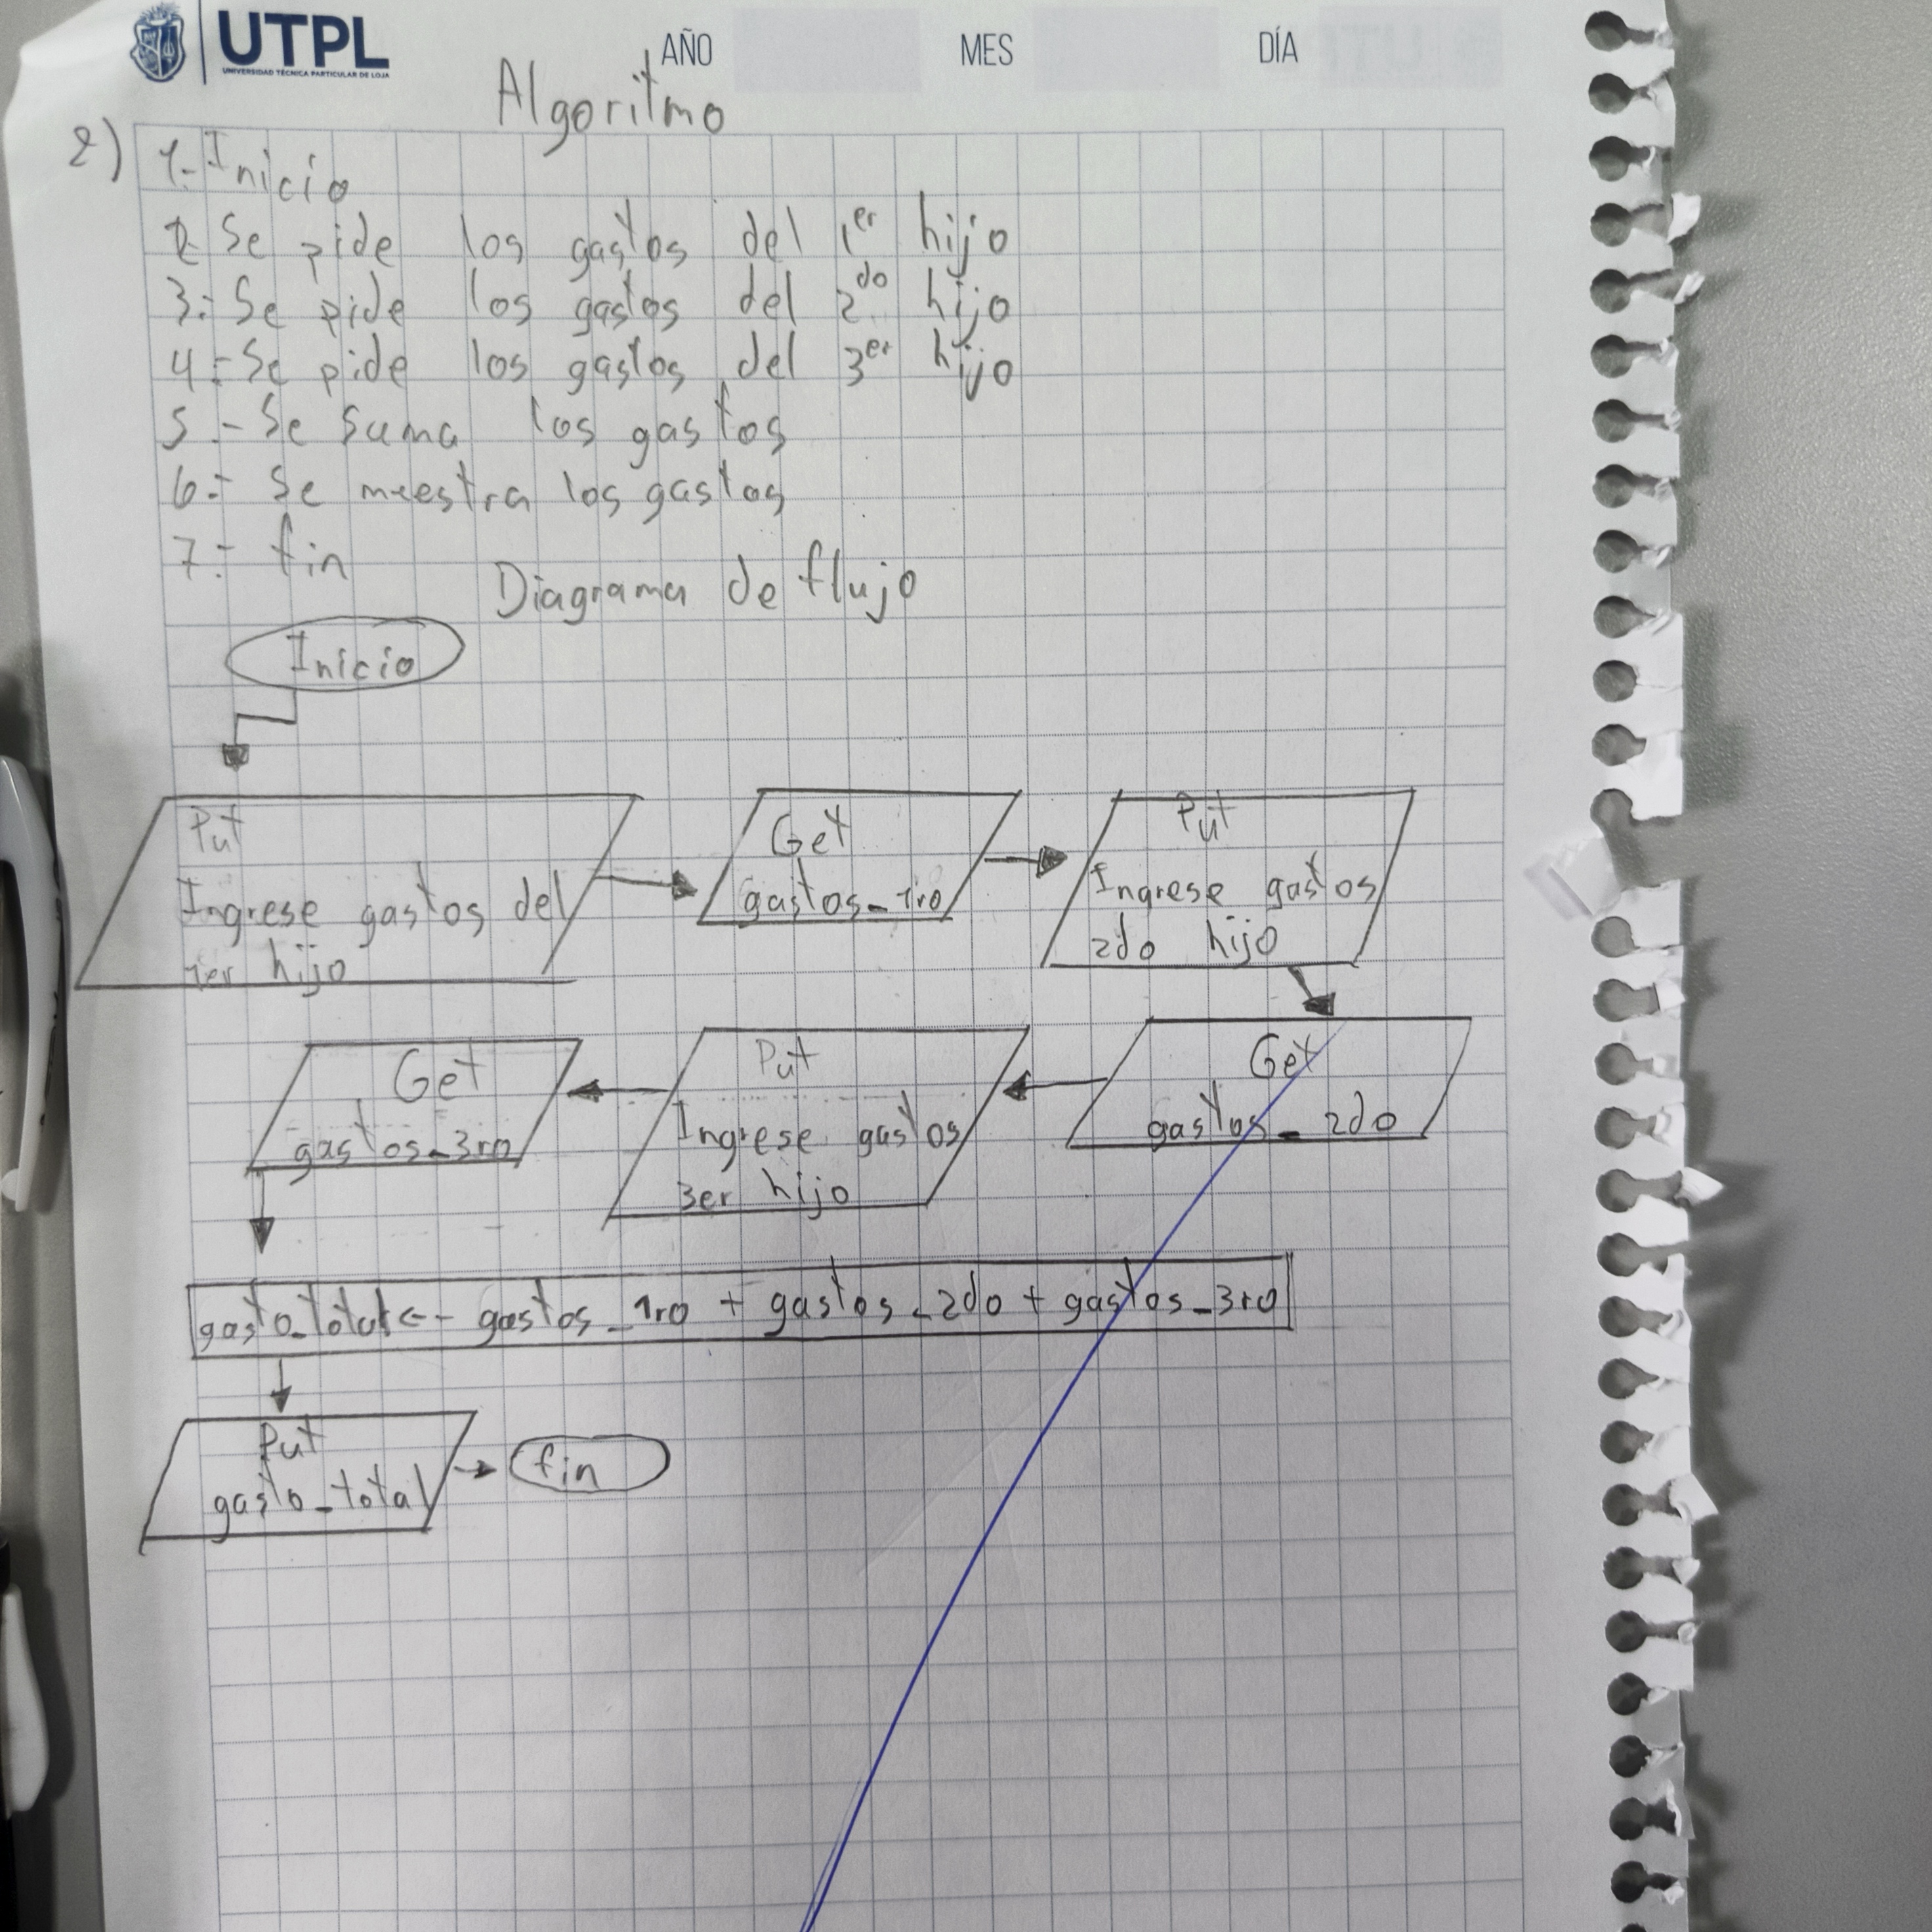 UTPL
UNIVERSIDAD TÉCNICA PARTICULAR DE LOJA
AÑO MES DÍA
Algoritmo
2)
1.- Inicio
2- Se pide los gastos del 1er hijo
3.- Se pide los gastos del 2do hijo
4.- Se pide los gastos del 3er hijo
5.- Se suma los gastos
6.- Se muestra los gastos
7.- fin
Diagrama de flujo
Inicio
Put
Ingrese gastos del
1er hijo
Get
gastos_1ro
Put
Ingrese gastos
2do hijo
Get
gastos_2do
Put
Ingrese gastos
3er hijo
Get
gastos_3ro
gasto_total <-- gastos_1ro + gastos_2do + gastos_3ro
Put
gasto_total
fin